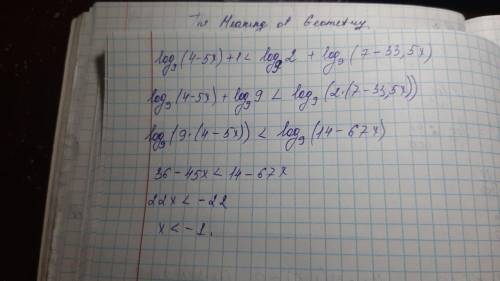 The Meaning of Geometry
log₉(4-5x)+1 < log₉2 + log₉(7-33,5x)
log₉(4-5x) + log₉9 < log₉(2·(7-33,5x))
log₉(9·(4-5x)) < log₉(14-67x)
36-45x < 14-67x
22x < -22
x < -1.